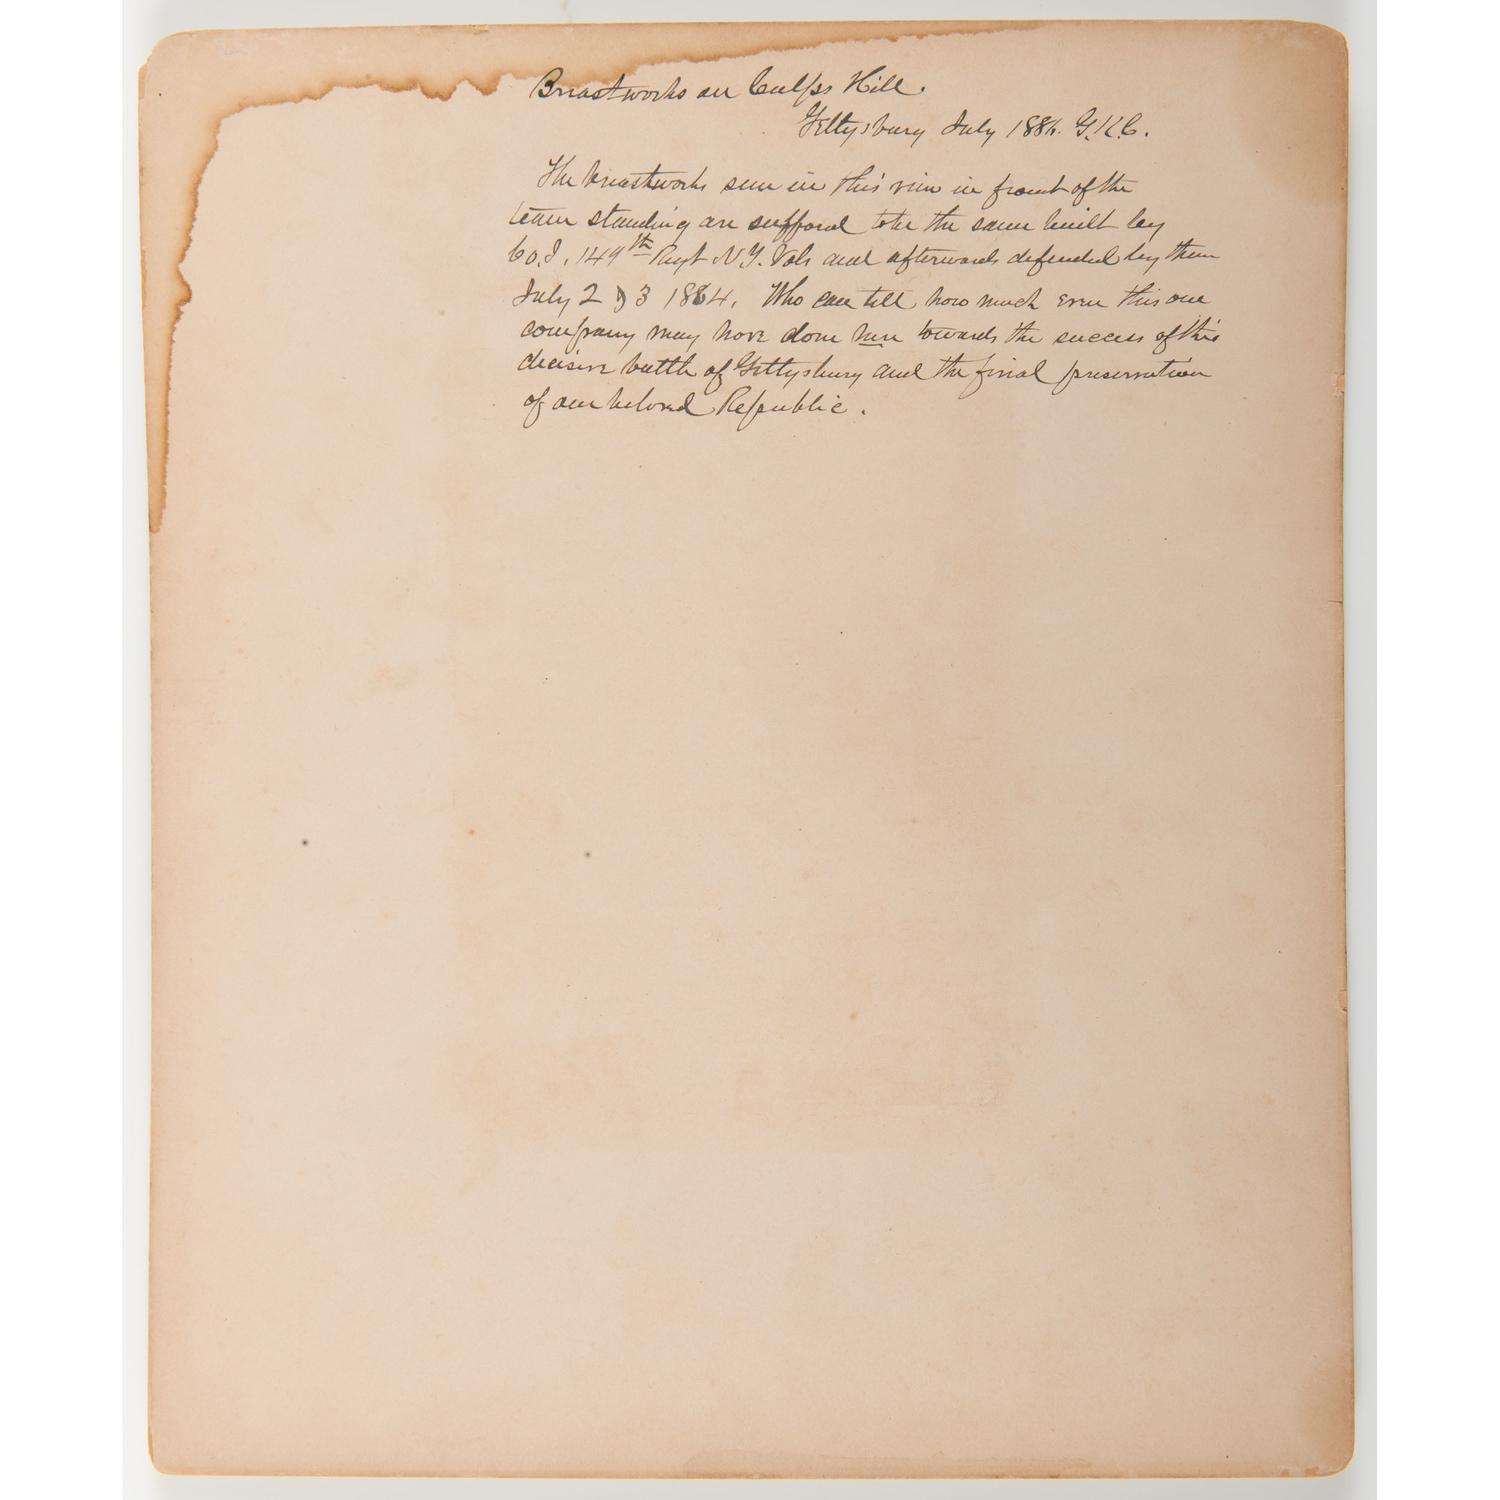 Breastworks on Culps Hill.
Gettysburg July 1884. G.K.C.
The breastworks seen in this view in front of the
team standing are supposed to be the same built by
Co. I, 149th Regt N.Y. Vols and afterwards defended by them
July 2 & 3 1864. Who can tell how much even this one
company may have done here towards the success of this
decisive battle of Gettysburg and the final preservation
of our beloved Republic.